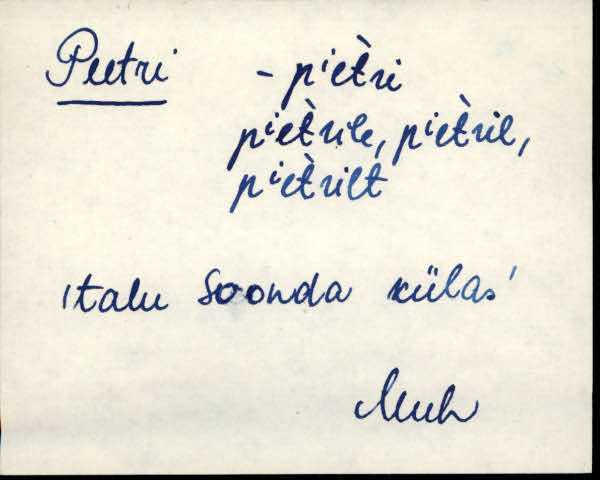 Peetri - pⁱet̀ri
pⁱet̀rile, pⁱet̀ril,
pⁱet̀rilt
'talu Soonda külas'
Muh